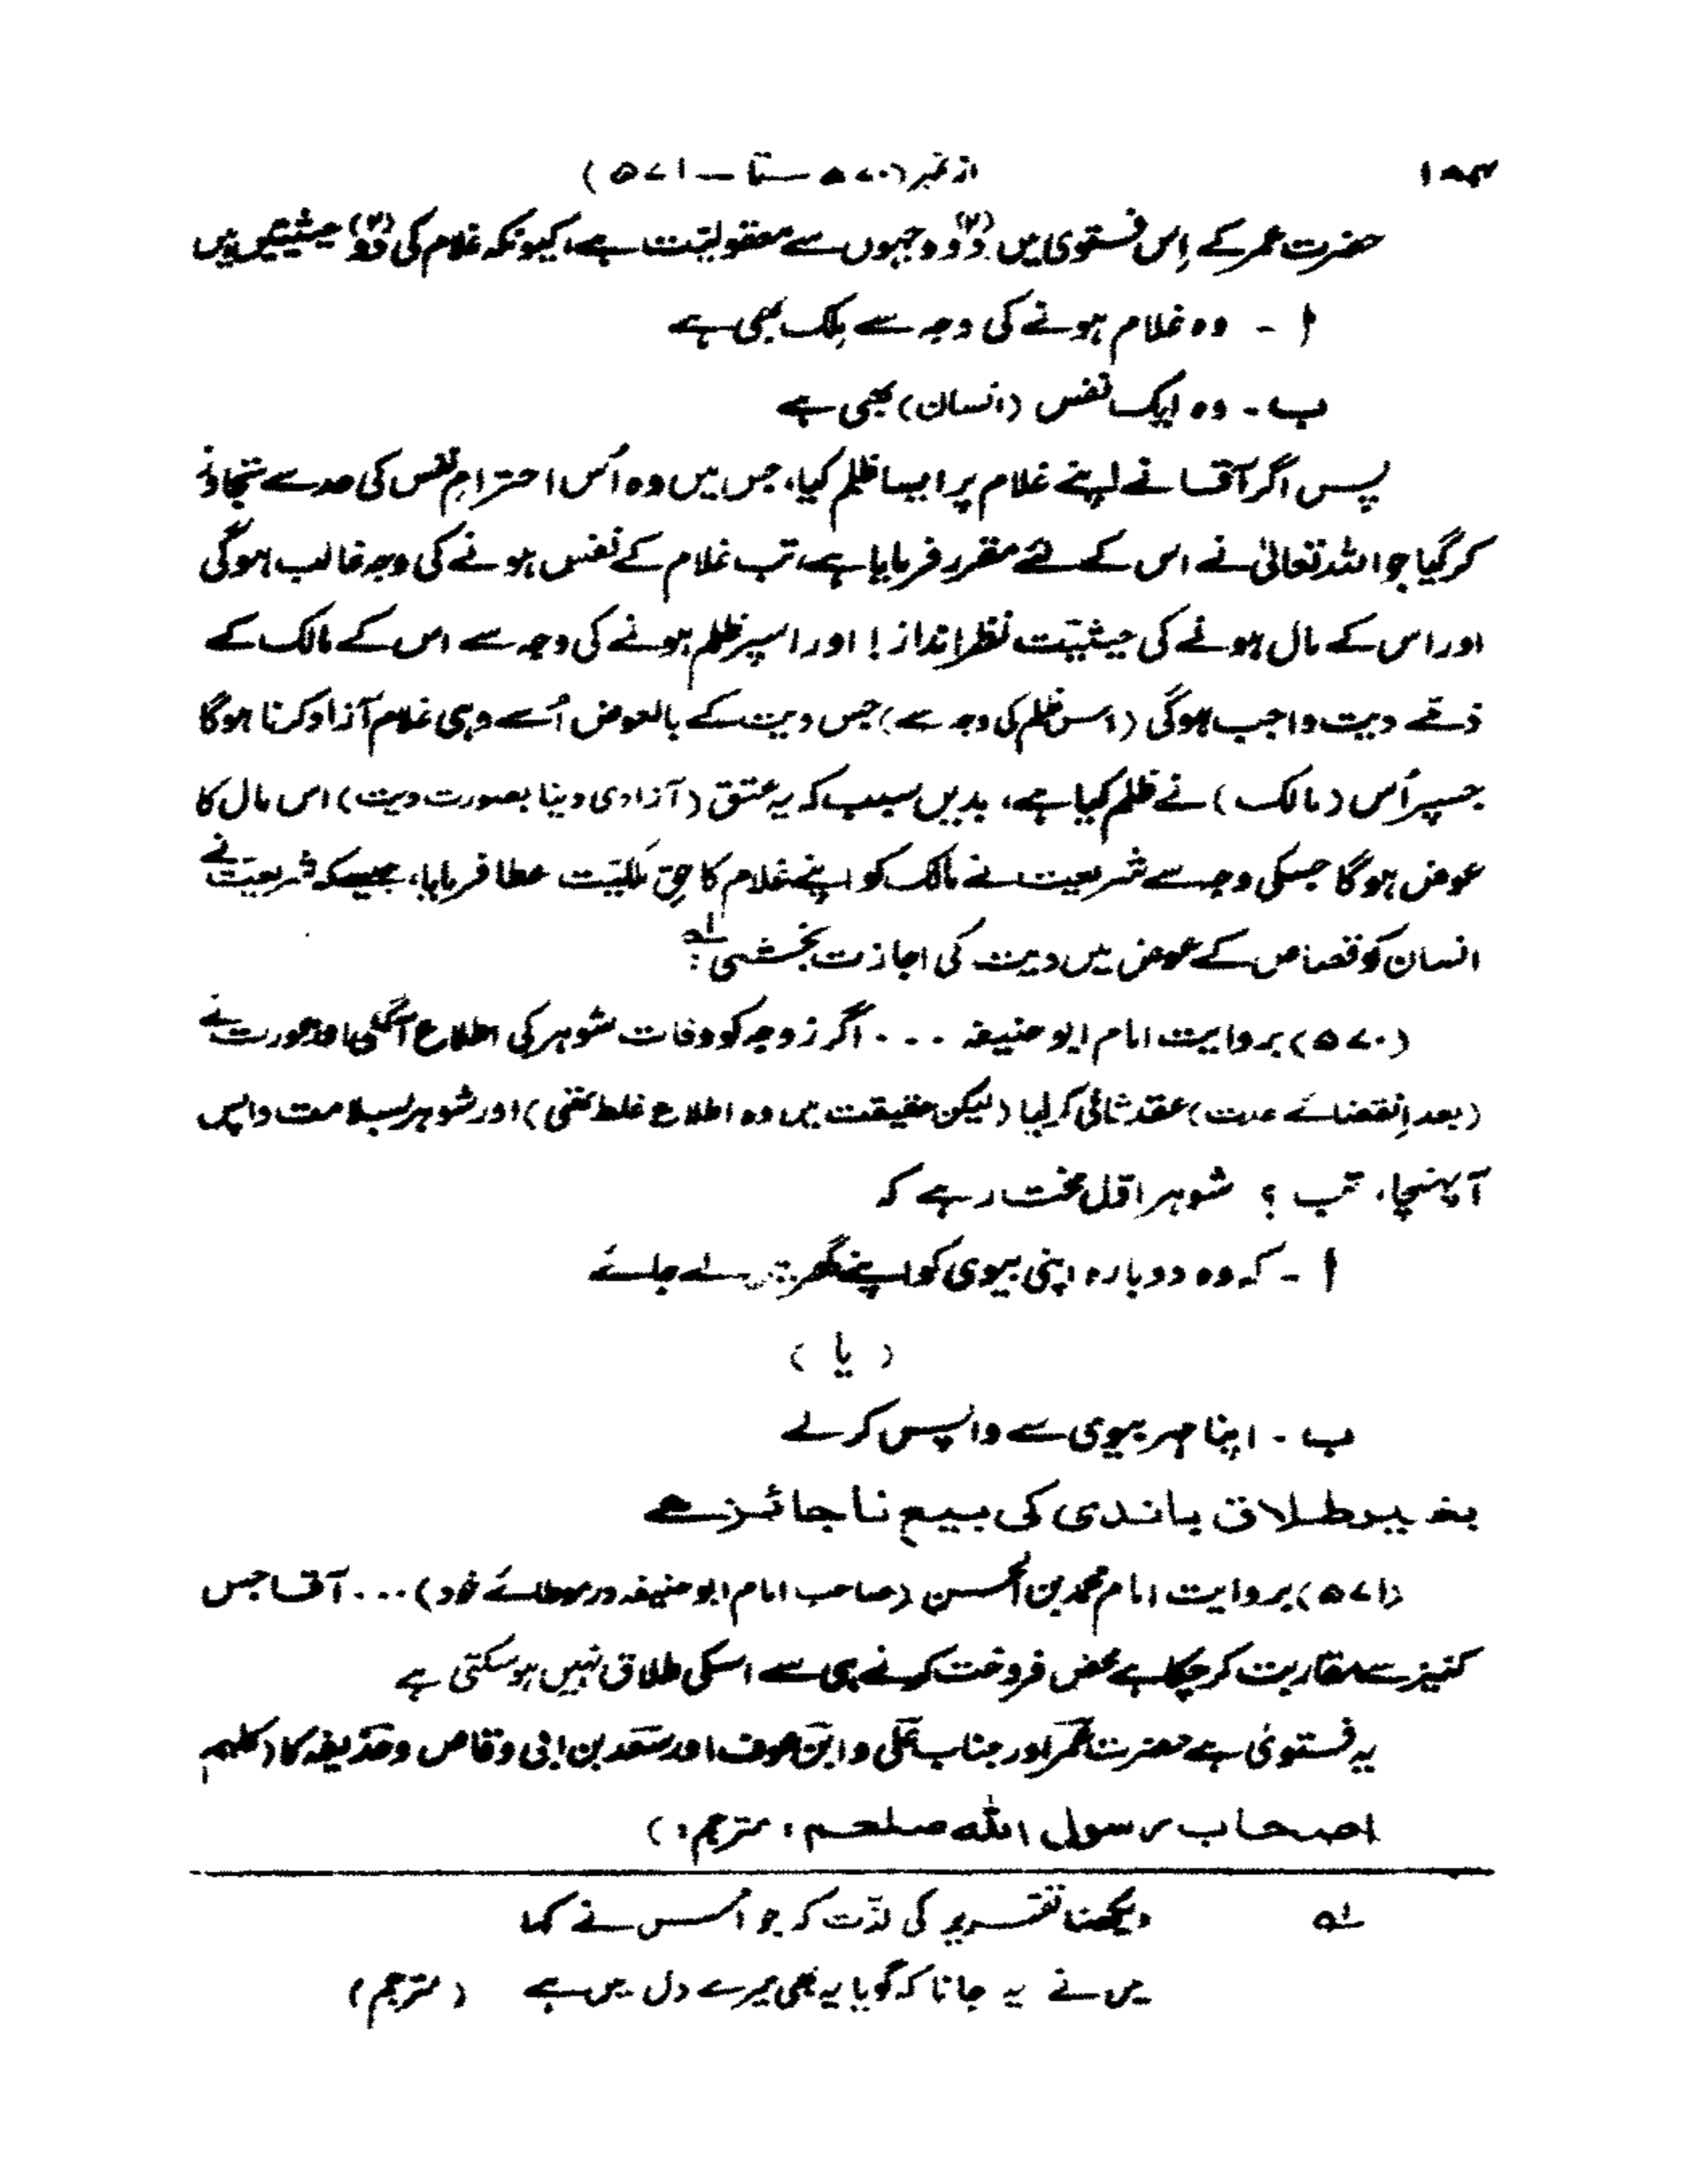 ۱۸۴ از نمبر (۵۷۰ ستا — ۵۷۱)
حضرت عمر کے اِس فستویٰ میں (۲) دو وجہوں سے معقولیّت ہے، کیونکہ غلام کی (۲) دو حیثیتیں ہیں
ا - وہ غلام ہونے کی وجہ سے مِلک بھی ہے
ب - وہ ایک نفس (انسان) بھی ہے
پس اگر آقا نے اپنے غلام پر ایسا ظلم کیا، جس میں وہ اُس احترامِ نفس کی حد سے تجاوز
کر گیا جو اللہ تعالیٰ نے اس کے لئے مقرر فرمایا ہے، تب غلام کے نفس ہونے کی وجہ غالب ہوگی
اور اس کے مال ہونے کی حیثیّت نظر انداز! اور اسپر ظلم ہونے کی وجہ سے اس کے مالک کے
ذمّے دیت واجب ہوگی (اس ظلم کی وجہ سے) جس دیت کے بالعوض اُسے وہی غلام آزاد کرنا ہوگا
جسپر اُس (مالک) نے ظلم کیا ہے، بدیں سبب کہ یہ عتق (آزادی دینا بصورت دیت) اس مال کا
عوض ہوگا جسکی وجہ سے شریعیت نے مالک کو اپنے غلام کا حقِ ملکیّت عطا فرمایا، جیسے کہ شریعیت نے
انسان کو قصاص کے عوض میں دیت کی اجازت بخشی ؎۱
(۵۷۰) بروایت امام ابو حنیفہ . . . اگر زوجہ کو وفات شوہر کی اطلاع آگئی اور عورت نے
(بعد اِنقضائے عدت) عقد ثانی کر لیا (لیکن حقیقت میں وہ اطلاع غلط تھی) اور شوہر بسلامت واپس
آ پہنچا، تب ؟ شوہر اوّل مختار ہے کہ
ا - کہ وہ دوبارہ اپنی بیوی کو اپنے گھر میں لے جائے
(یا)
ب - اپنا مہر بیوی سے واپس کر لے
بغیر طلاق باندی کی بیع ناجائز ہے
(۵۷۱) بروایت امام محمد بن الحسن (صاحب امام ابو حنیفہ در موطائے خود) ... آقا جس
کنیز سے مقاربت کر چکا ہے محض فروخت کرنے ہی سے اسکی طلاق نہیں ہو سکتی ہے
یہ فستویٰ ہے حضرت عمر اور جناب علی و ابن عوف اور سعد بن ابی وقاص و حذیفہ کا (کلہم
اصحاب رسول اللہ صلعم ؛ مترجم ؛)
؎۱ دیکھنا تقریر کی لذّت کہ جو اُس نے کہا
میں نے یہ جانا کہ گویا یہ بھی میرے دل میں ہے (مترجم)